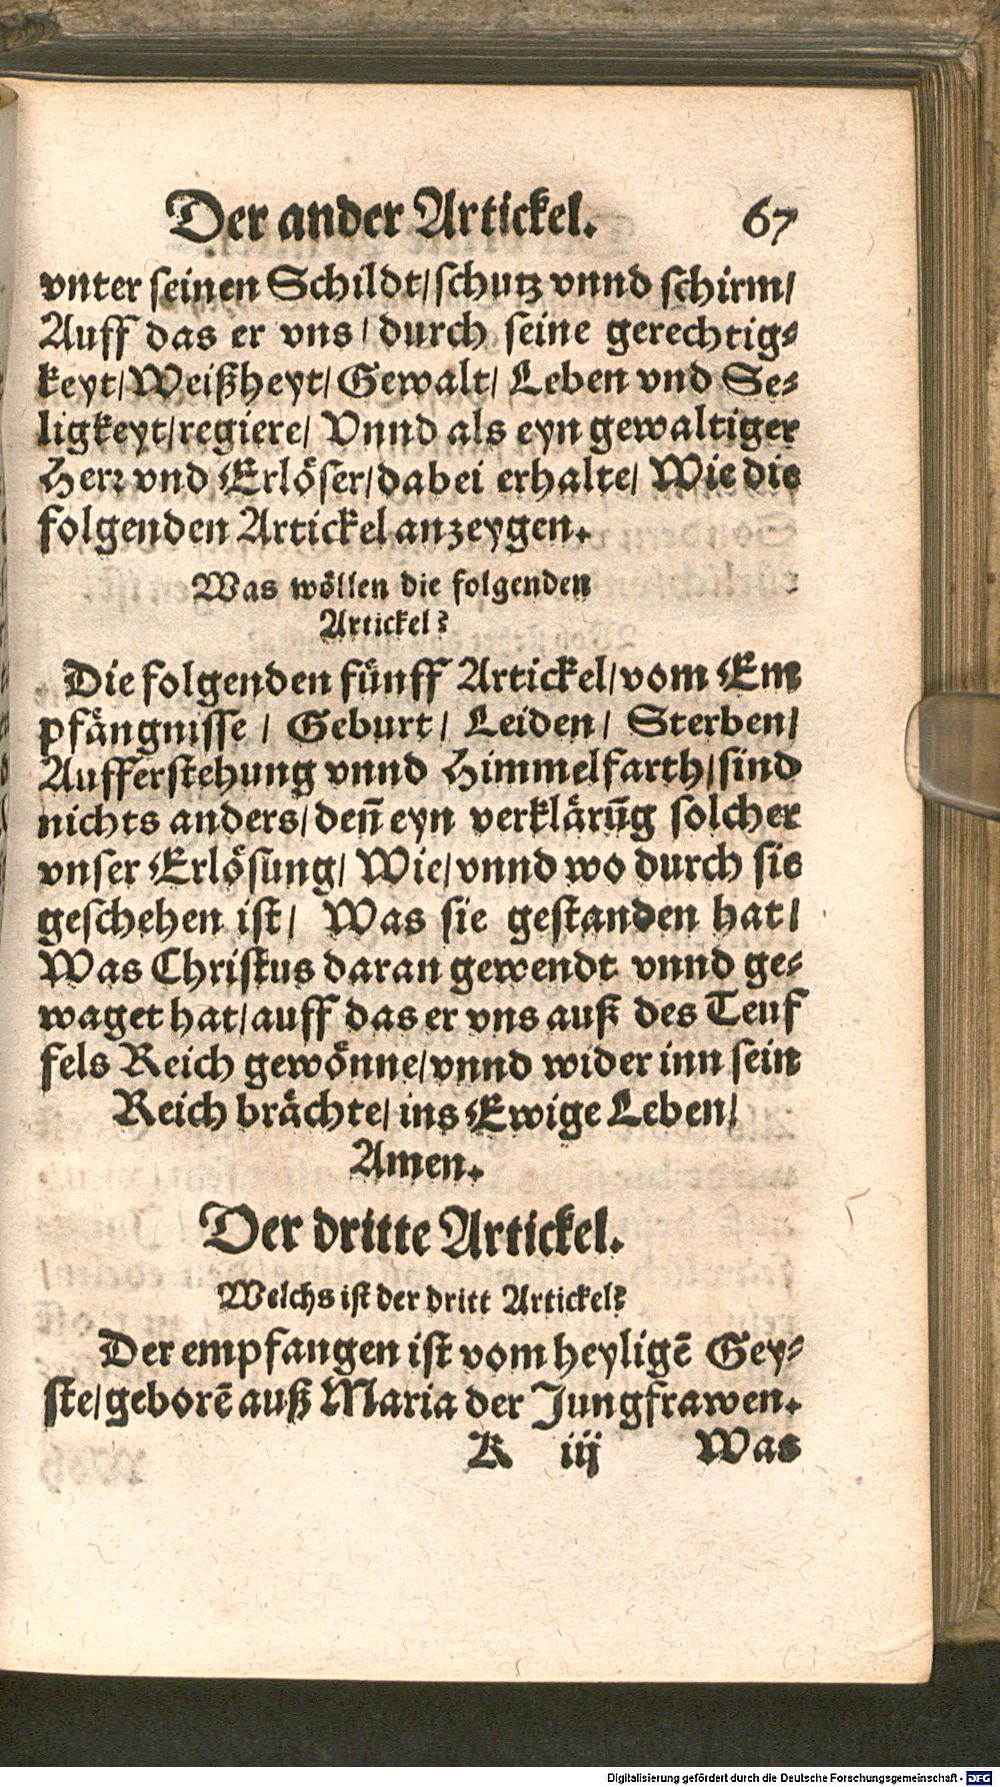 Der ander Artickel. 67
vnter seinen Schildt/schutz vnnd schirm/
Auff das er vns/durch seine gerechtig⸗
keyt/Weißheyt/Gewalt/Leben vnd Se⸗
ligkeyt/regiere/Vnnd als eyn gewaltiger
Herr vnd Erlöser/dabei erhalte/Wie die
folgenden Artickel anzeygen.
Was wöllen die folgenden
Artickel?
Die folgenden fünff Artickel/vom Em
pfängnisse/Geburt/Leiden/Sterben/
Aufferstehung vnnd Himmelfarth/sind
nichts anders/deñ eyn verklärūg solcher
vnser Erlösung/Wie/vnnd wo durch sie
geschehen ist/Was sie gestanden hat/
Was Christus daran gewendt vnnd ge⸗
waget hat/auff das er vns auß des Teuf
fels Reich gewönne/vnnd wider inn sein
Reich brächte/ins Ewige Leben/
Amen.
Der dritte Artickel.
Welchs ist der dritt Artickel?
Der empfangen ist vom heyligē Gey⸗
ste/geborē auß Maria der Jungfrawen.
K iij Was
Digitalisierung gefördert durch die Deutsche Forschungsgemeinschaft - DFG